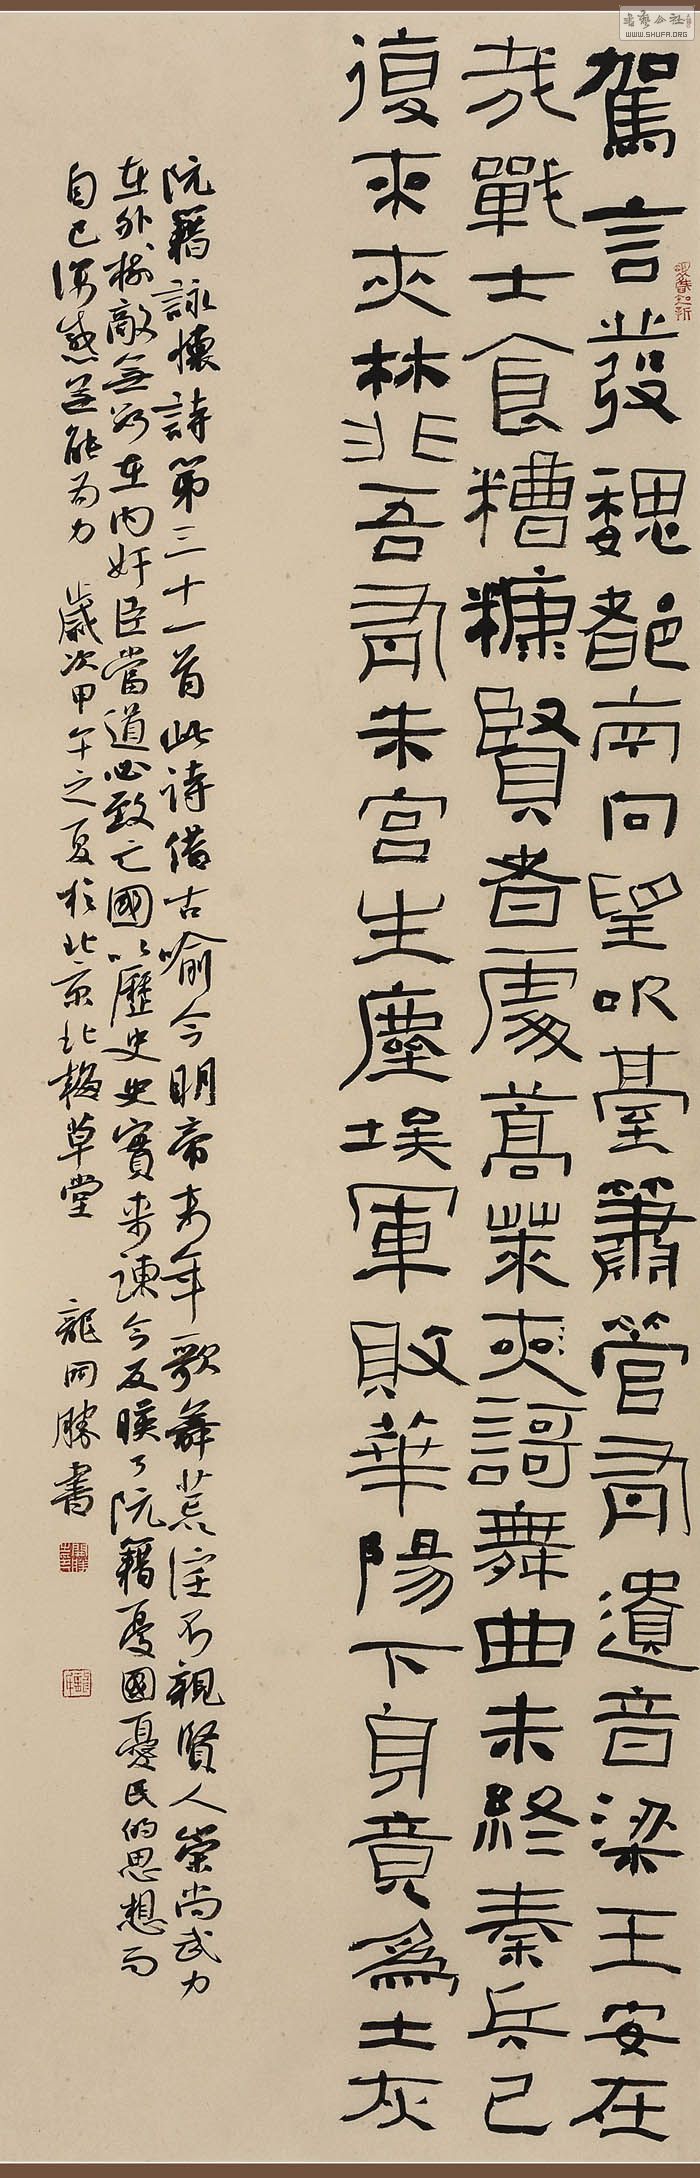 駕言發魏都南向望吹臺簫管有遺音梁王安在
哉戰士食糟糠賢者處蒿萊夾謌舞曲未終秦兵已
復來夾林非吾有朱宮生塵埃軍敗華陽下身竟為土灰
阮籍詠懷詩第三十一首此诗借古喻今明帝末年歌舞荒淫不親賢人崇尚武力
在外樹敵無數在内奸臣當道必致亡國以歷史史實来諫今反映了阮籍憂國憂民的思想而
自己深感無能为力 歲次甲午之夏於北京北梅草堂 龍開勝書
書藝公社
WWW.SHUFA.ORG